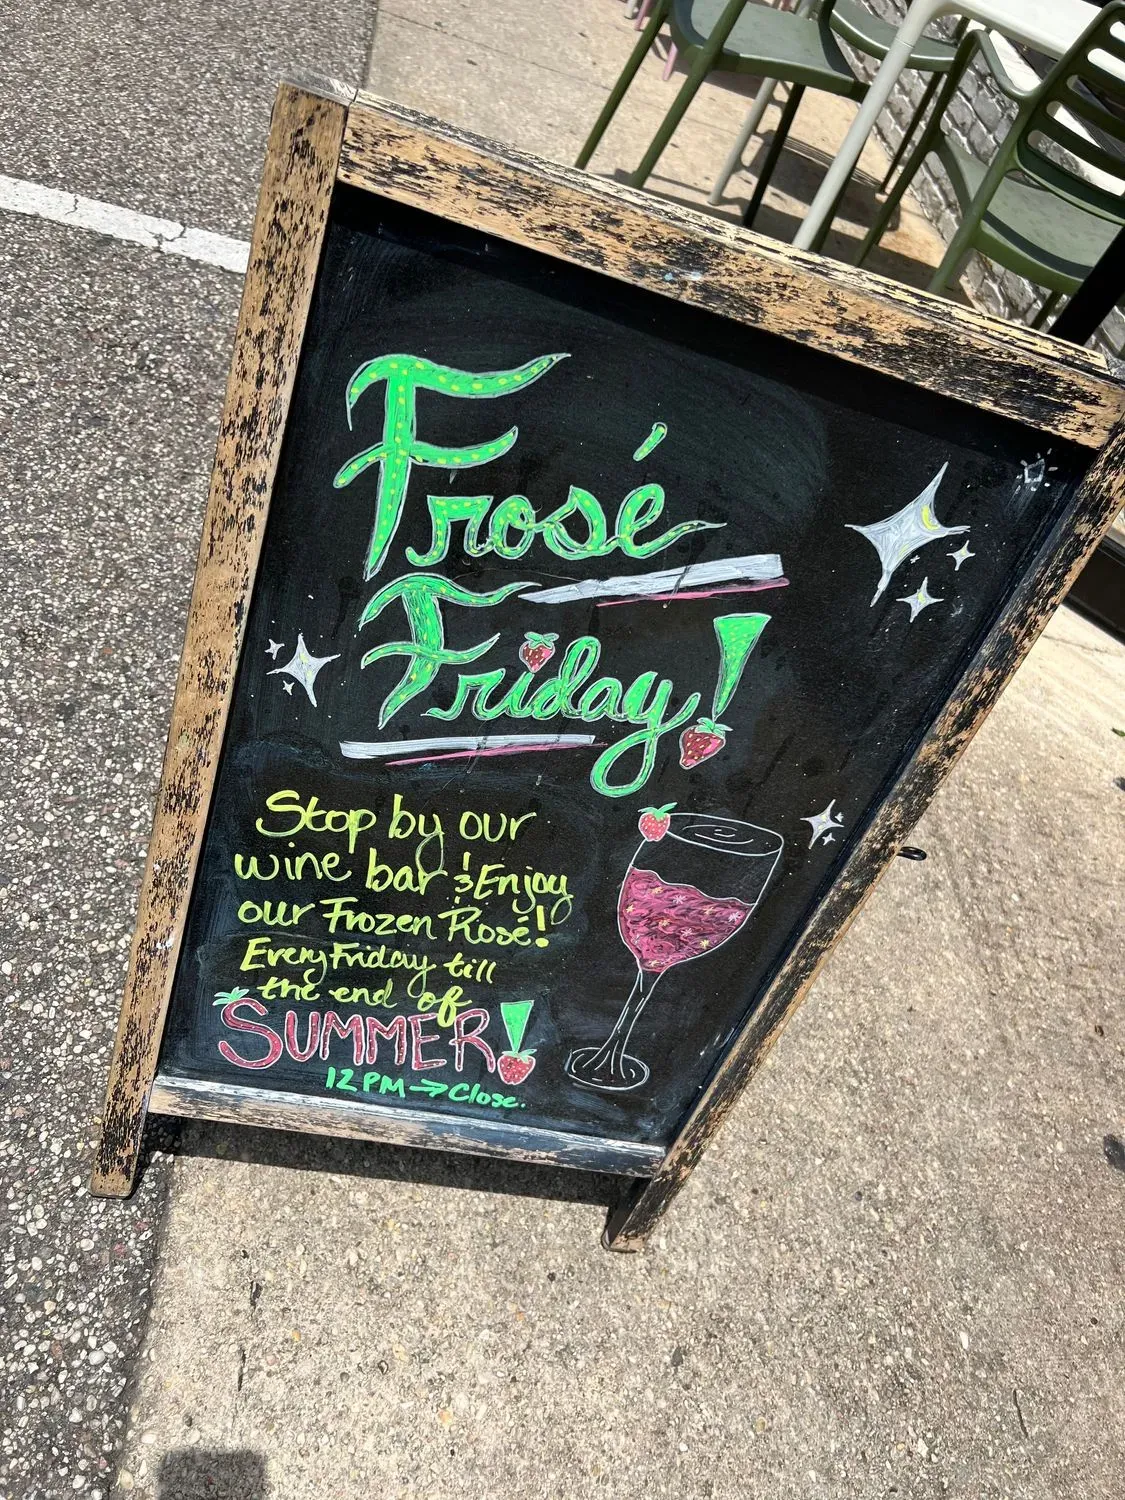 Frosé
Friday!
Stop by our
wine bar & Enjoy
our Frozen Rosé!
Every Friday till
the end of
SUMMER!
12 PM → Close.